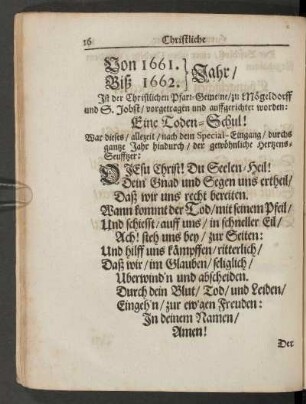 16 Christliche
Von 1661.
Biß 1662. } Jahr/
Ist der Christlichen Pfarr-Gemeine/zu Mögeldorff
und S. Jobst/ vorgetragen und auffgerichtet worden:
Eine Toden-Schul!
War dieses/ allezeit/ nach dem Special-Eingang/ durchs
gantze Jahr hindurch/ der gewöhnliche Hertzens-
Seufftzer:
O JEsu Christ! Du Seelen-Heil!
Dein Gnad und Segen uns ertheil/
Daß wir uns recht bereiten.
Wann kommt der Tod/ mit seinem Pfeil/
Und schiesst/ auff uns/ in schneller Eil/
Ach! steh uns bey/ zur Seiten:
Und hilff uns kämpffen/ ritterlich/
Daß wir/ im Glauben/ seliglich/
Uberwind'n und abscheiden.
Durch dein Blut/ Tod/ und Leiden/
Eingeh'n/ zur ew'gen Freuden:
In deinem Namen/
Amen!
Der